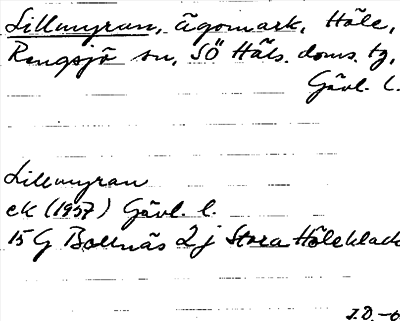 Lillmyran, ägomark, Höle,
Rengsjö sn, SÖ Häls. doms. tg,
Gävl. l.
Lillmyran
ek (1957) Gävl. l.
15 G Bollnäs 2 j Stora Hölehlack
J.D.